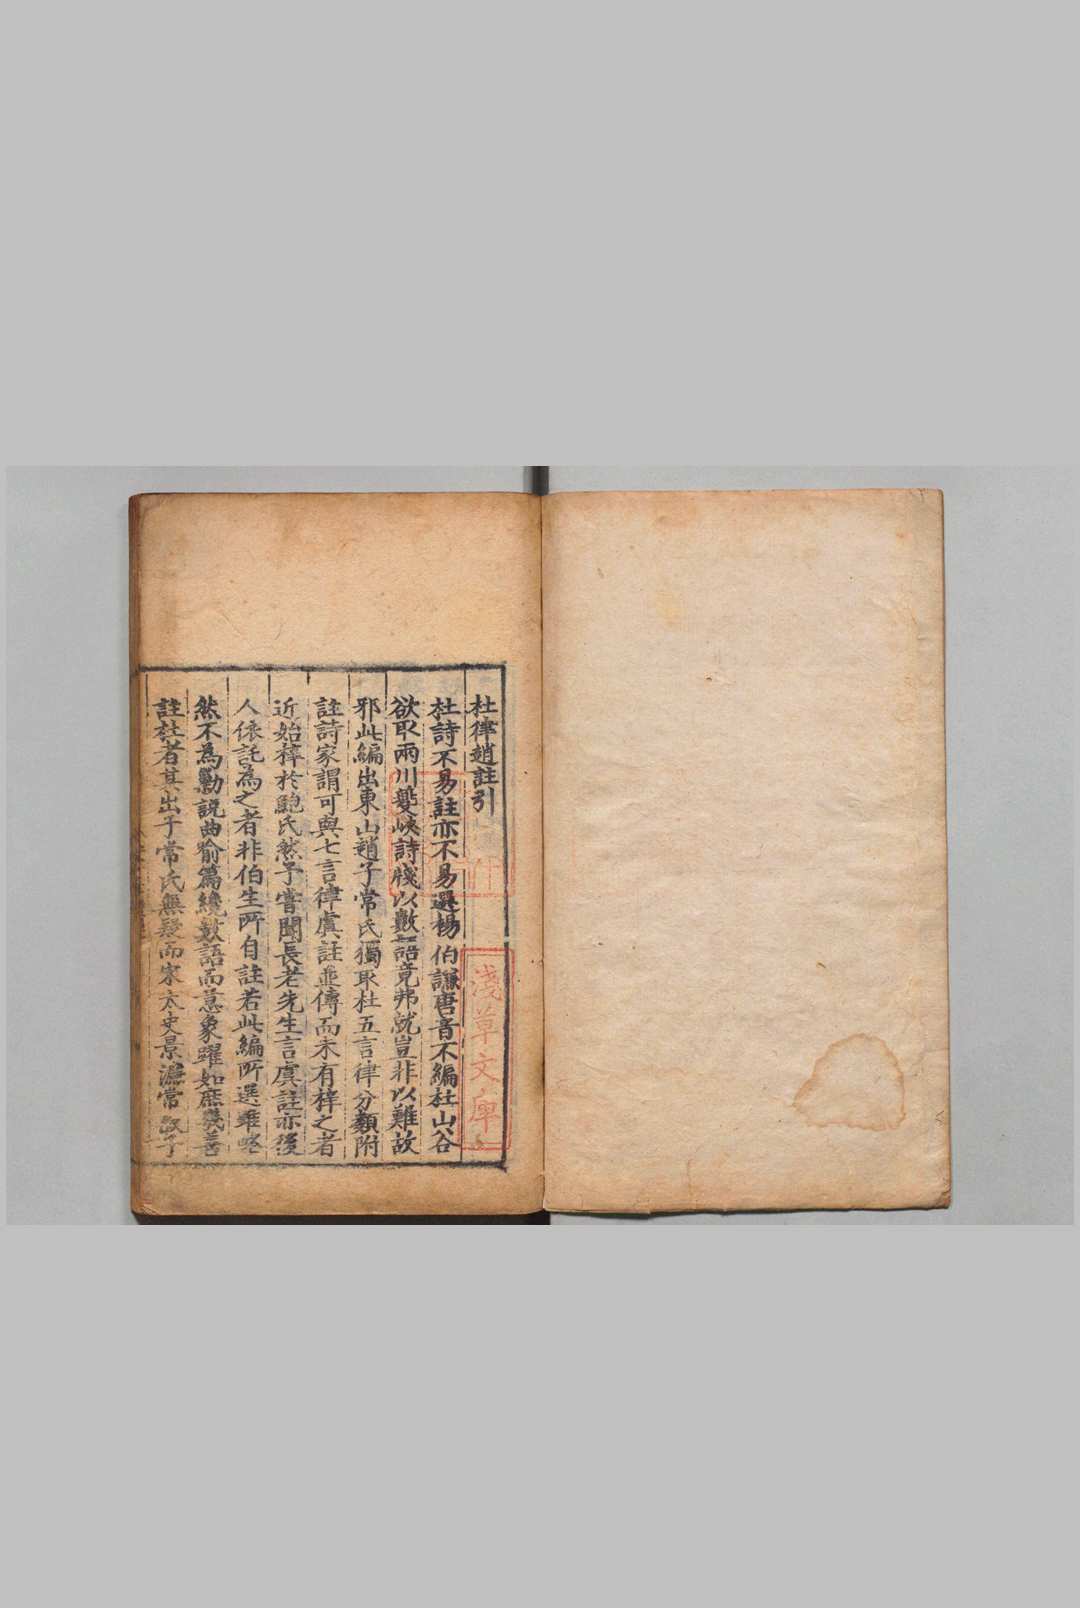 杜律趙註引
杜詩不易註亦不易選楊伯謙唐音不編杜山谷
欲取兩川夔峽詩牋以數語竟弗就豈非以難故
邪此編出東山趙子常氏獨取杜五言律分類附
註詩家謂可與七言律虞註並傳而未有梓之者
近始梓於鮑氏然予嘗聞長老先生言虞註亦後
人依託為之者非伯生所自註若此編所選雖略
然不為勦説曲喻篇纔數語而意象躍如庶幾善
註杜者其出子常氏無疑而宋太史景濂常敘子
淺草文庫